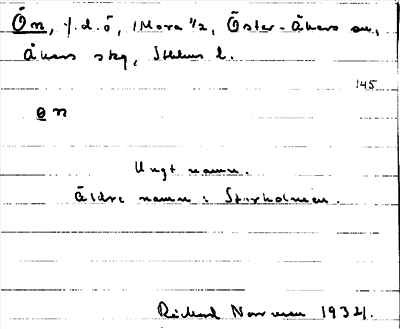 Ön, f.d.ö, 1 Mora 1/2, Öster-Åkers sn.,
Åkers skg, Sthlms l.
145
ɵn
Ungt namn.
Äldre namn: Storholmen.
Rickard Norrman 1932.